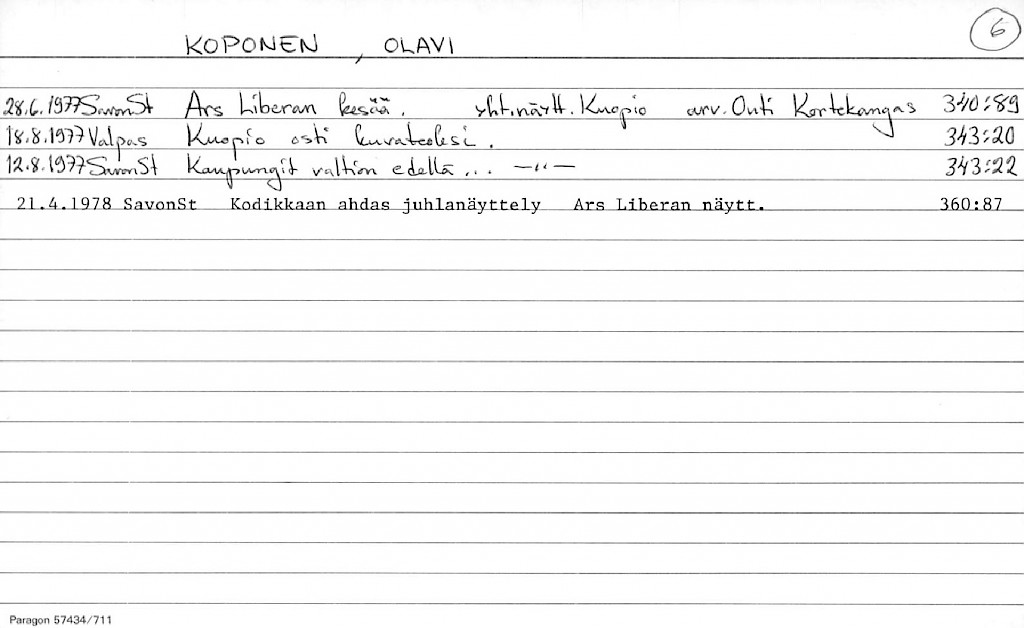 6
KOPONEN, OLAVI
28.6.1977 SavonSt Ars Liberan kesää. yht.näytt. Kuopio arv. Outi Kortekangas 340:89
18.8.1977 Valpas Kuopio osti kuvateoksi. 343:20
12.8.1977 SavonSt Kaupungit valtion edellä... —"— 343:22
21.4.1978 SavonSt Kodikkaan ahdas juhlanäyttely Ars Liberan näytt. 360:87
Paragon 57434/711